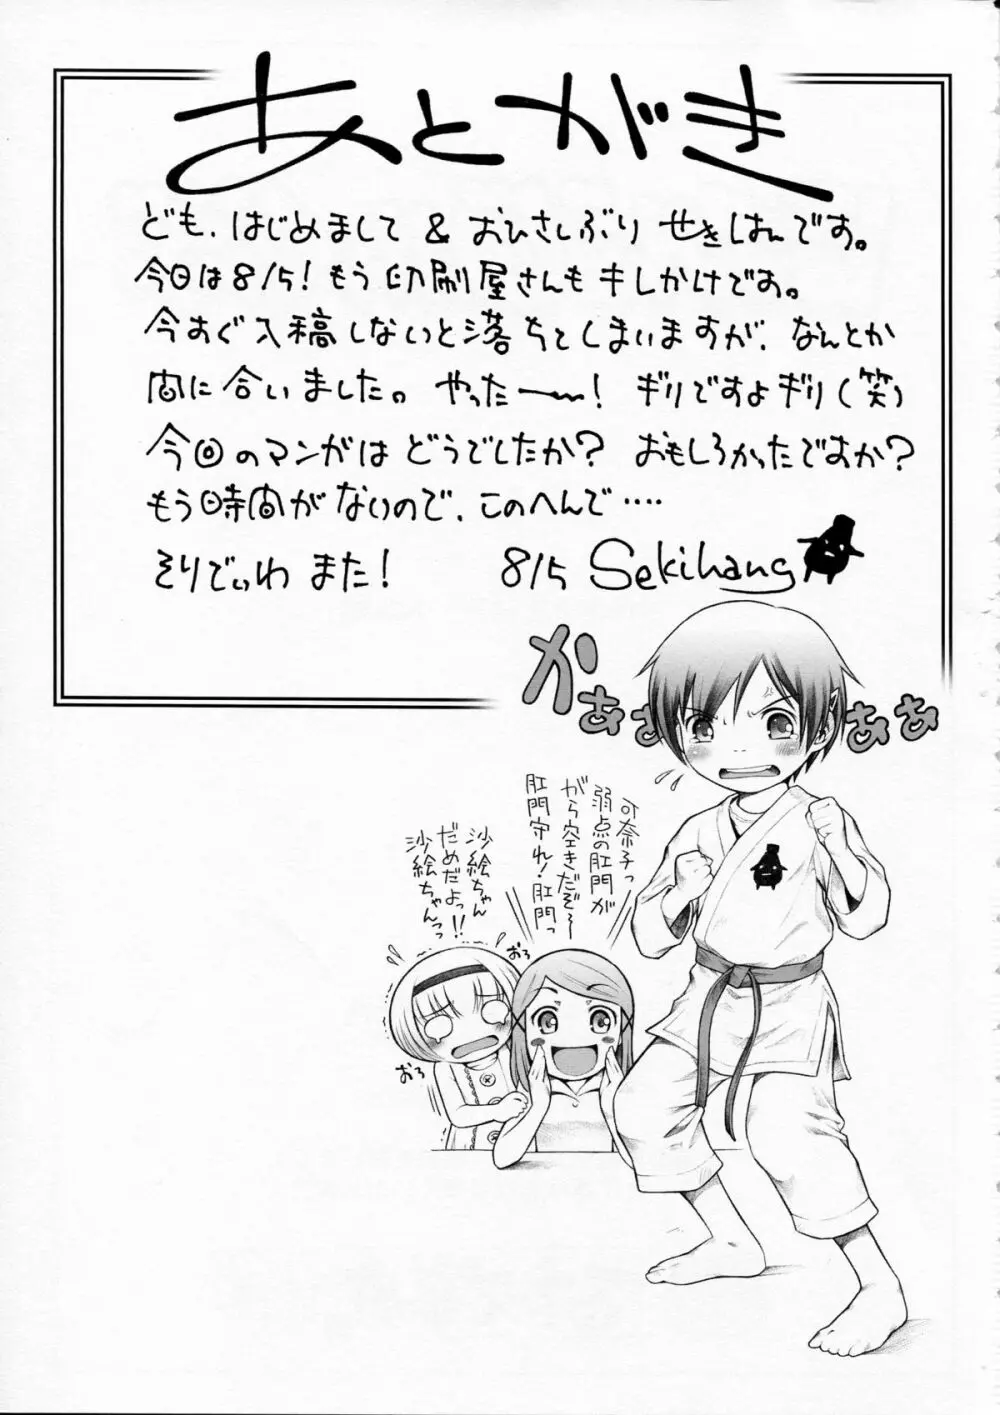 あとがき
ども、はじめまして & おひさしぶり せきはんです。
今日は8/5! もう印刷屋さんもキしかけです。
今すぐ入稿しないと落ちてしまいますが、なんとか
間に合いました。 やったー〜! ギリですよギリ(笑)
今回のマンガは どうでしたか? おもしろかったですか?
もう時間がないので、このへんで‥‥
そりでぃわ また! 8/5 Sekihang
かぁぁ
ああ
可奈子っ
弱点の肛門が
がら空きだぞ〜
肛門守れ!肛門っ
沙絵ちゃん
だめだよっ!!
沙絵ちゃんっっ
おろ
おろ